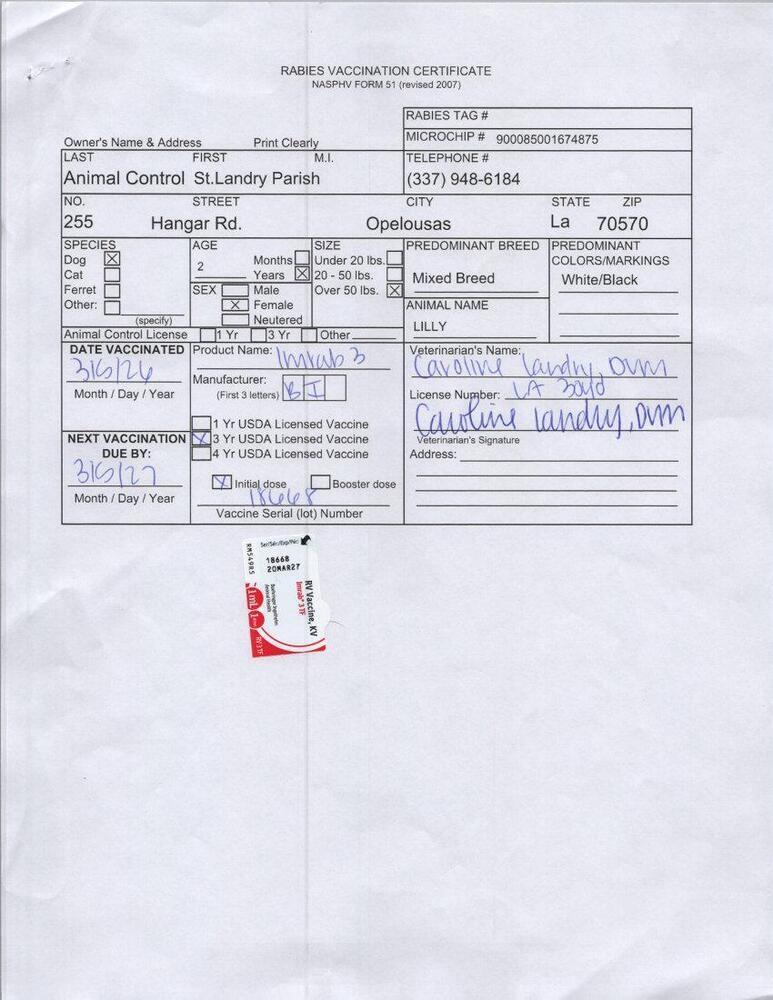 RABIES VACCINATION CERTIFICATE
NASPHV FORM 51 (revised 2007)
RABIES TAG #
Owner's Name & Address Print Clearly
MICROCHIP # 900085001674875
LAST FIRST M.I. TELEPHONE #
Animal Control St.Landry Parish (337) 948-6184
NO. STREET CITY STATE ZIP
255 Hangar Rd. Opelousas La 70570
SPECIES AGE SIZE PREDOMINANT BREED PREDOMINANT
COLORS/MARKINGS
Dog X Months Under 20 lbs.
Cat 2 Years X 20 - 50 lbs. Mixed Breed White/Black
Ferret SEX Male Over 50 lbs. X
Other: X Female ANIMAL NAME
(specify) Neutered LILLY
Animal Control License 1 Yr 3 Yr Other
DATE VACCINATED Product Name: Imrab 3 Veterinarian's Name:
3/6/26 Caroline Landry, DVM
Month / Day / Year Manufacturer:
(First 3 letters) B I License Number: LA
1 Yr USDA Licensed Vaccine Caroline Landry, DVM
NEXT VACCINATION X 3 Yr USDA Licensed Vaccine Veterinarian's Signature
DUE BY: 4 Yr USDA Licensed Vaccine Address:
3/6/27
X Initial dose Booster dose
Month / Day / Year 18668
Vaccine Serial (lot) Number
Ser/Sér/Exp/Pér:
18668
20MAR27
RM549R5
RV Vaccine, KV
Imrab® 3 TF
Boehringer Ingelheim
Animal Health
1 mL 1
RV3TF